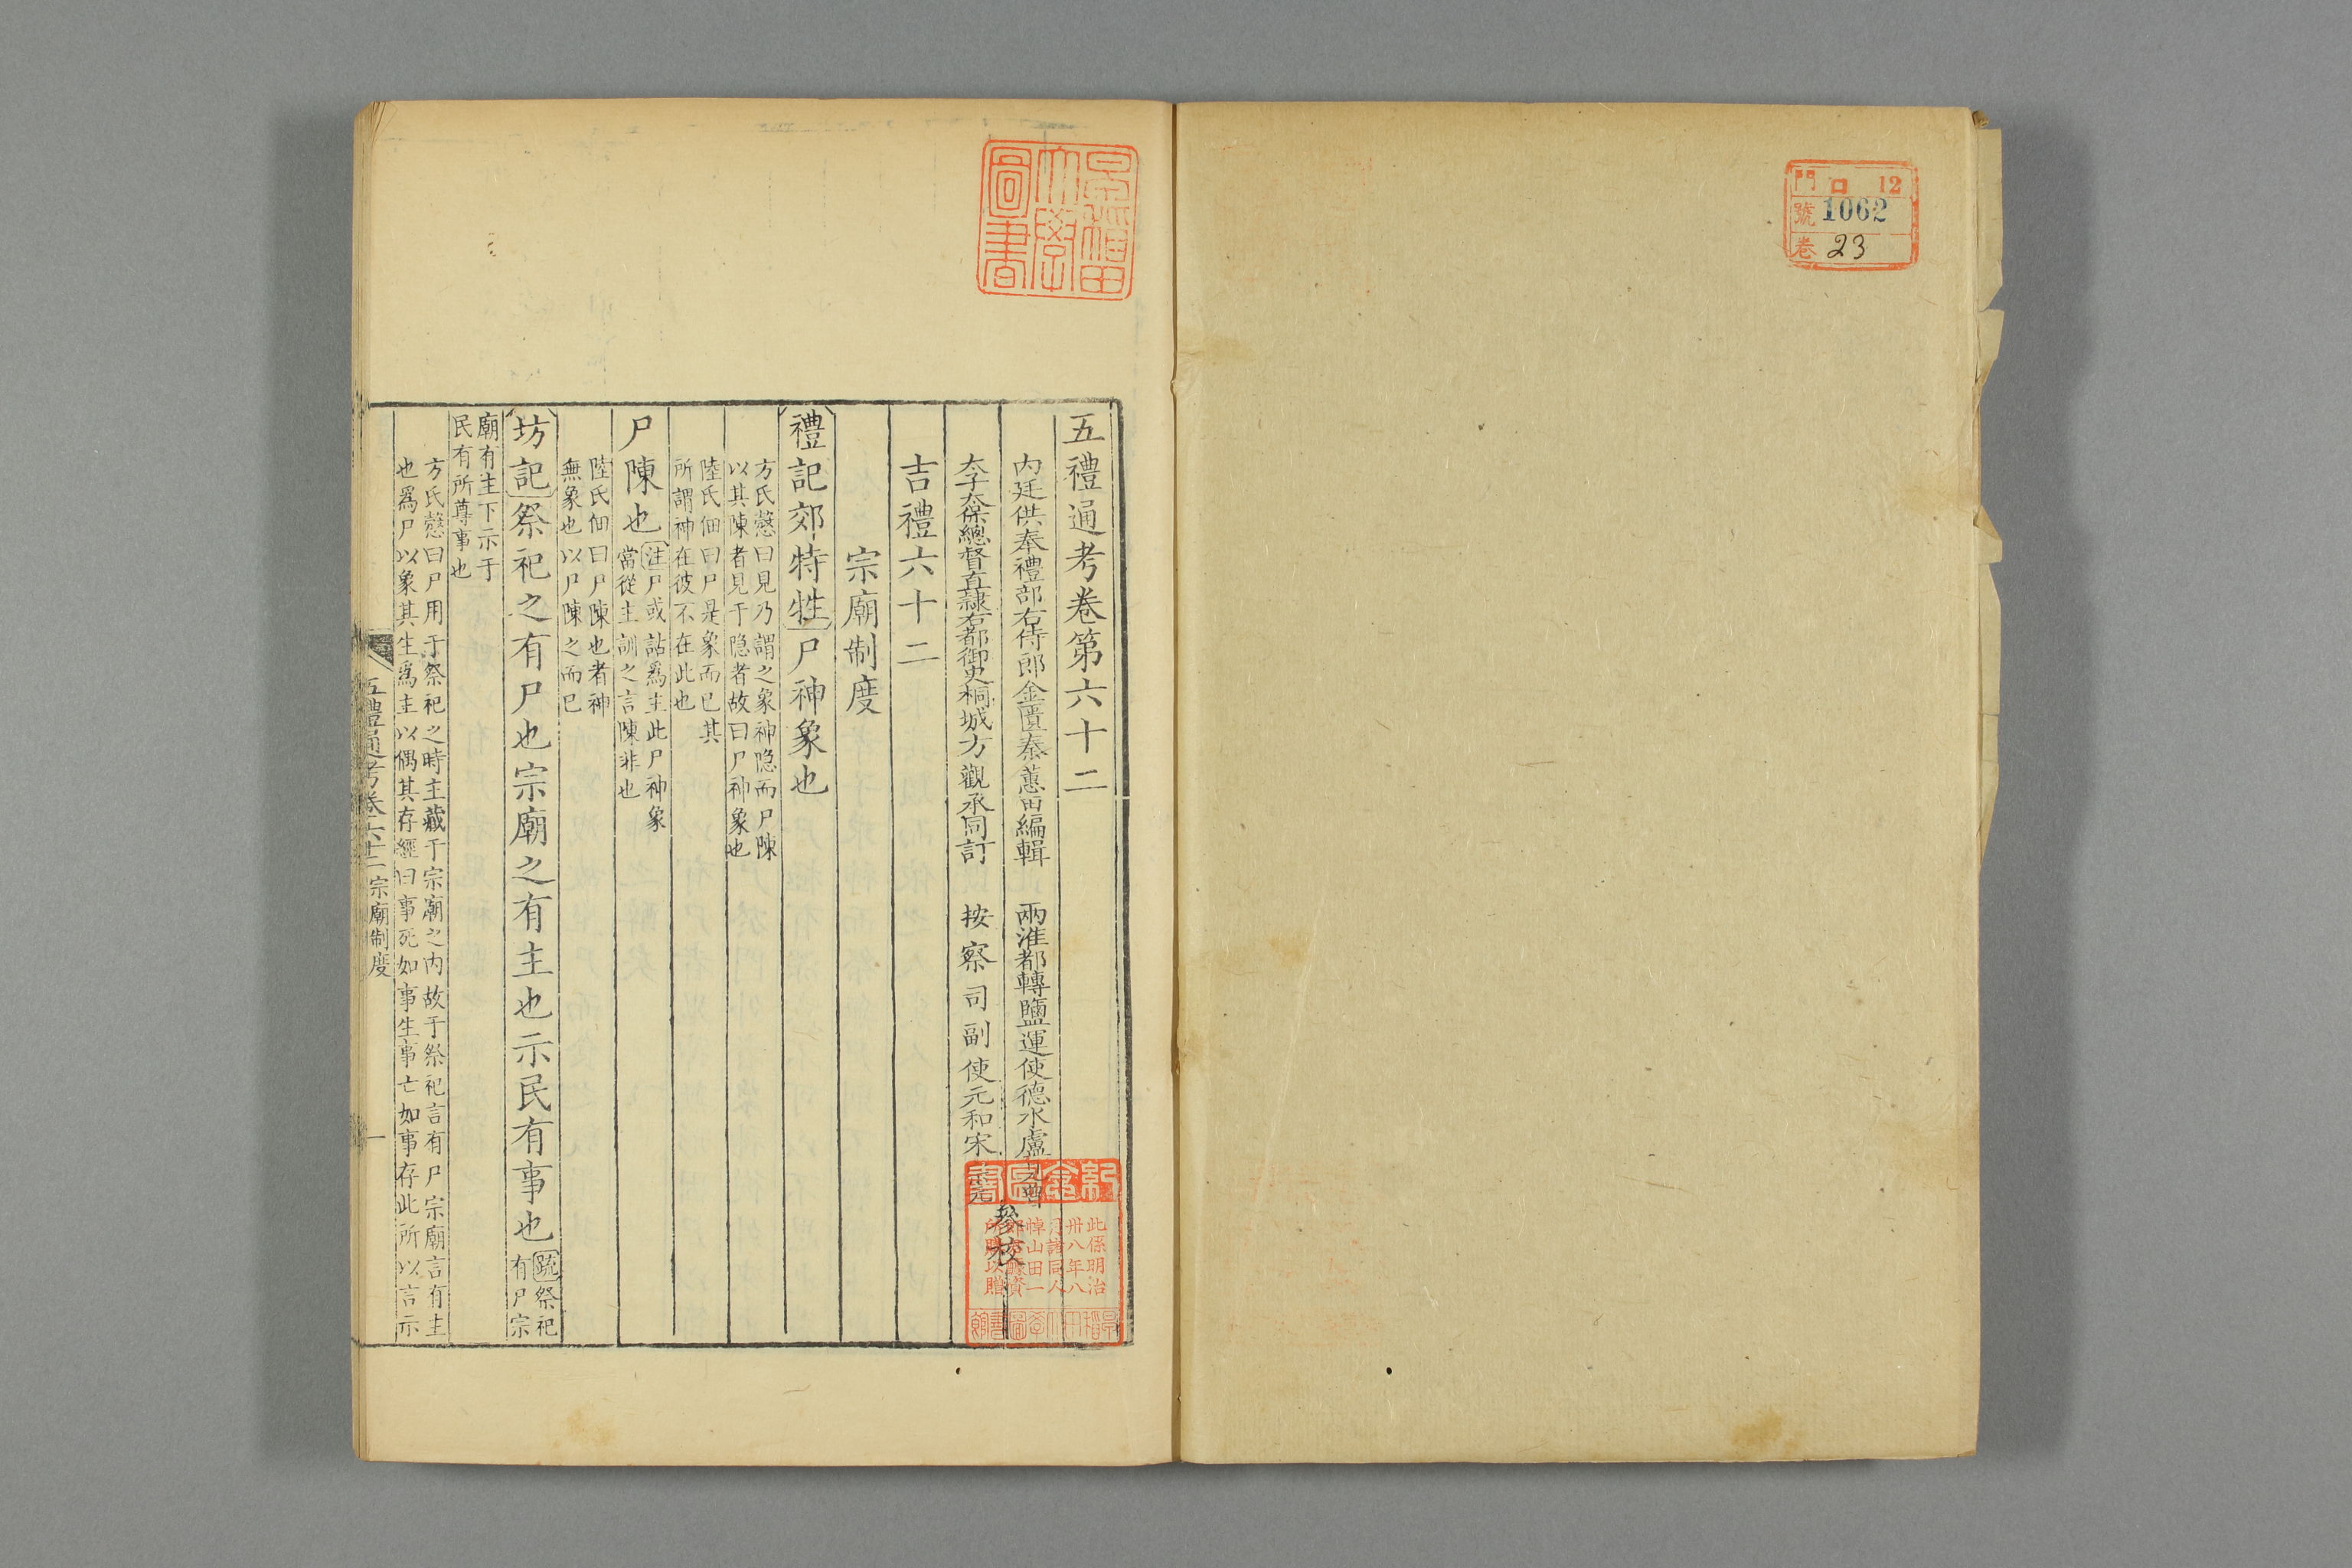 門 口 12
號 1062
卷 23
五禮通考卷第六十二
内廷供奉禮部右侍郎金匱秦蕙田編輯 兩淮都轉鹽運使德水盧見曾
太子太保總督直隸右都御史桐城方觀承同訂 按察司副使元和宋宗元
參校
吉禮六十二
宗廟制度
禮記郊特牲尸神象也
方氏慤曰見乃謂之象神隐而尸陳
以其陳者見于隐者故曰尸神象也
陸氏佃曰尸是象而已其
所謂神在彼不在此也
尸陳也
注尸或詁爲主此尸神象
當從主訓之言陳非也
陸氏佃曰尸陳也者神
無象也以尸陳之而已
坊記祭祀之有尸也宗廟之有主也示民有事也
疏祭祀
有尸宗
廟有主下示于
民有所尊事也
方氏慤曰尸用于祭祀之時主藏于宗廟之内故于祭祀言有尸宗廟言有主
也爲尸以象其生爲主以偶其存經曰事死如事生事亡如事存此所以言示
五禮通考卷六十二 宗廟制度 一
早稻田
大學
圖書